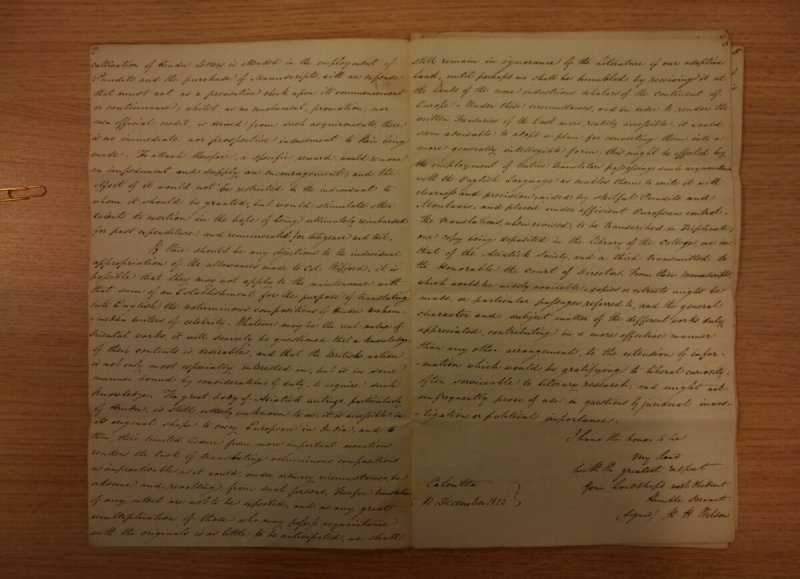 2
cultivation of Hindu Letters is attended in the employment of
Pundits and the purchase of Manuscripts, with an expense
that must act as a preventive check upon its commencement
or continuance; whilst, as no emolument, promotion, nor
even official credit, is derived from such acquirements, there
is no immediate nor prospective inducement to their being
made. To attach therefor, a specific reward, would remove
an impediment and supply an encouragement; and the
effect of it would not be restricted to the individual to
whom it should be granted, but would stimulate other
talents to exertion in the hope of being ultimately reimbursed
for past expenditure, and remunerated for diligence and toil.
If there should be any objections to the individual
appropriation of the allowance made to Col. Wilford, it is
possible that they may not apply to the maintenance with
that sum of an Establishment for the purpose of translating
into English the voluminous compositions of Hindu & Mohum-
-medan writers of celebrity. Whatever may be the real value of
Oriental works it will scarcely be questioned that a knowledge
of their contents is desirable, and that the British nation
is not only most especially interested in, but is in some
manner bound by considerations of duty, to acquire such
knowledge. The great body of Asiatick writings, particularly
of Hindu, is still utterly unknown to us, it is accessible in
its original shape to every European in India, and to
them, their limited leisure from more important avocations
renders the task of translating voluminous compositions
as impracticable as it would, under ordinary circumstances, be
irksome and revolting, from such persons, therefore translations
of any extent are not to be expected, and as any great
multiplication of those who may possess acquaintance
with the originals is as little to be anticipated, we shall
still remain in ignorance of the Literature of our adoptive
Land, until perhaps we shall be humbled by receiving it at
the hands of the more industrious scholars of the continent of
Europe. Under these circumstances, and in order to render the
written Treasuries of the East more readily accessible, it would
seem advisable to adopt a plan for converting them into a
more generally intelligible form. This might be effected by
the employment of native Translators possessing such acquaintance
with the English Language as enables them to write it with
clearness and precision, aided by skilful Pundits and
Moulavis, and placed under efficient European controls.
The Translations, when revised, to be transcribed in Triplicate;
one copy being deposited in the Library of the College, one in
that of the Asiatick Society, and a third transmitted to
the Honorable the Court of Directors. From these manuscripts,
which would be widely available, copies or extracts might be
made, or particular passages referred to, and the general
character and subject matter of the different works duly
appreciated, contributing in a more effective manner
than any other arrangement, to the extension of infor-
mation which would be gratifying to liberal curiosity,
often serviceable to literary research, and might not
unfrequently prove of use in questions of juridical inves-
-tigation or political importance.
I have the honor to be
My Lord
with the greatest respect
Your Lordship's most Obedient
Humble Servant
Calcutta
11 December 1822
(Signed) H. H. Wilson